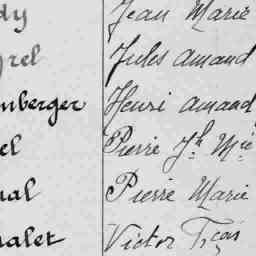 dy Jean Marie
rel Jules Amand
nberger Henri Amand
el Pierre Jh Mie
nal Pierre Marie
alet Victor Fçois